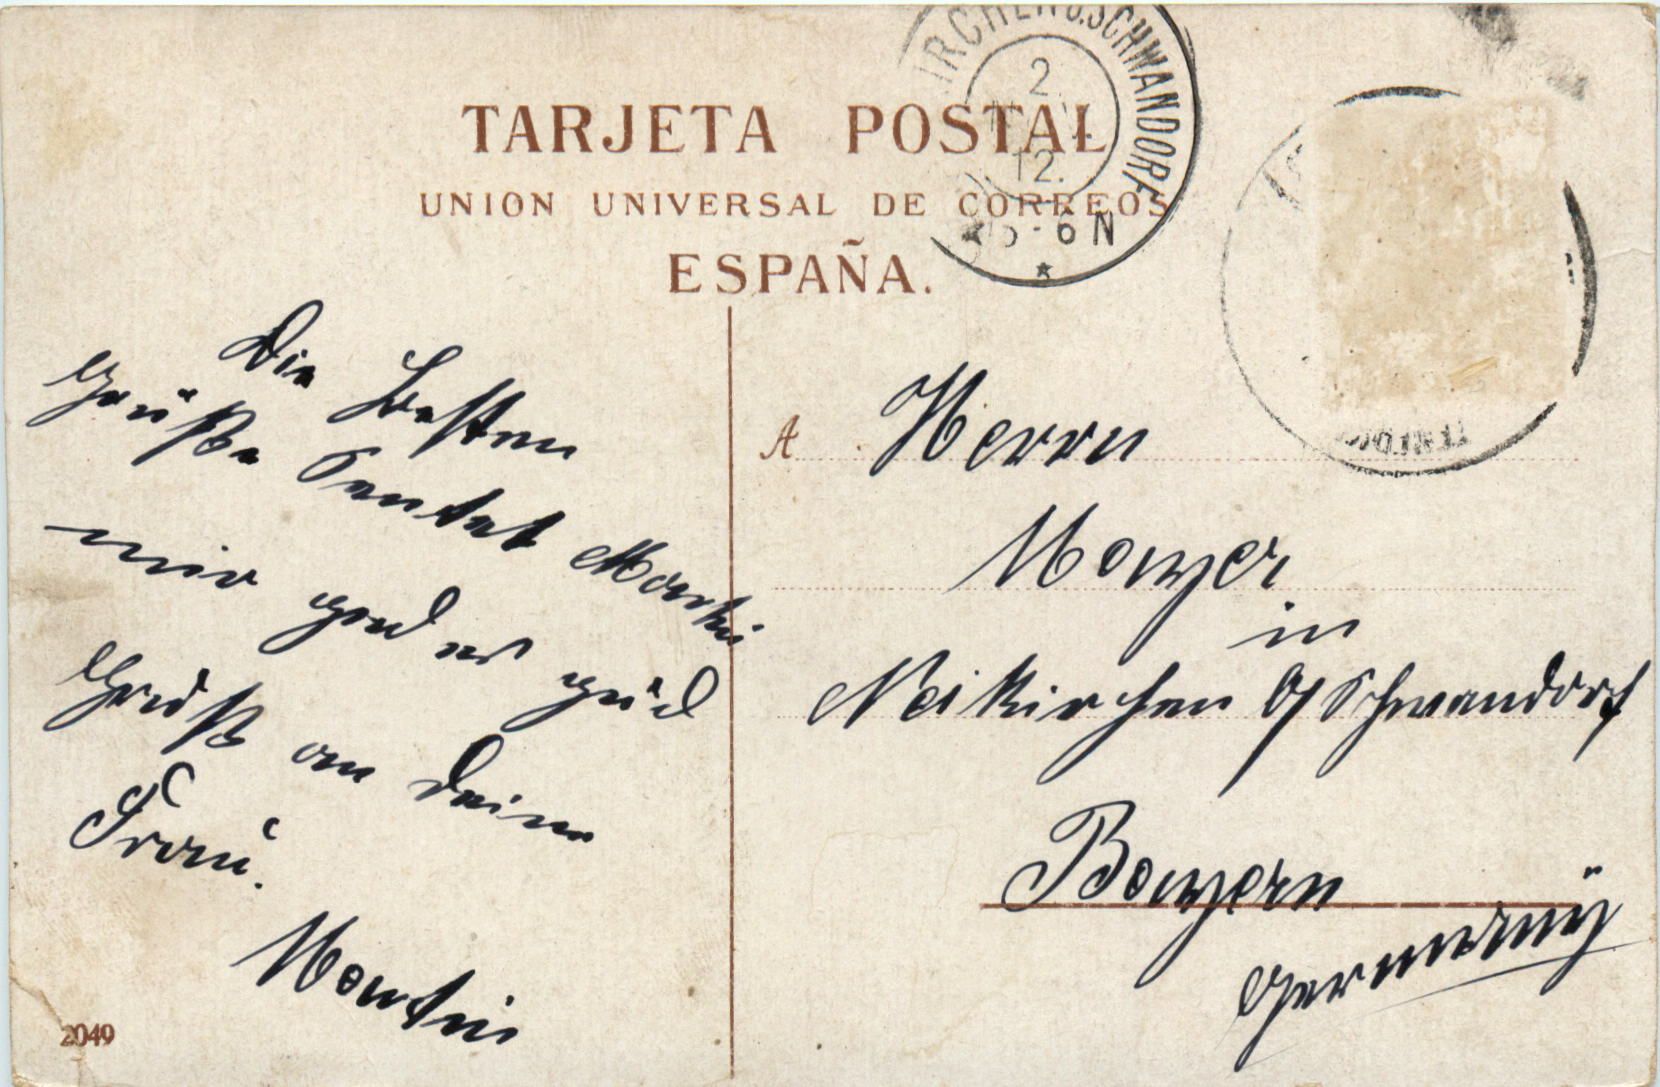 TARJETA POSTAL
UNION UNIVERSAL DE CORREOS
ESPAÑA.
IRCHEN b. SCHWANDORF
2.
12.
5-6 N
Die besten
Grüße Sentet Martin
mir ged es gud
Gruß an deine
Frau.
Martin
2049
A Herrn
Mayer
in
Neikirchen b/Schwandorf
Bayern
Germany